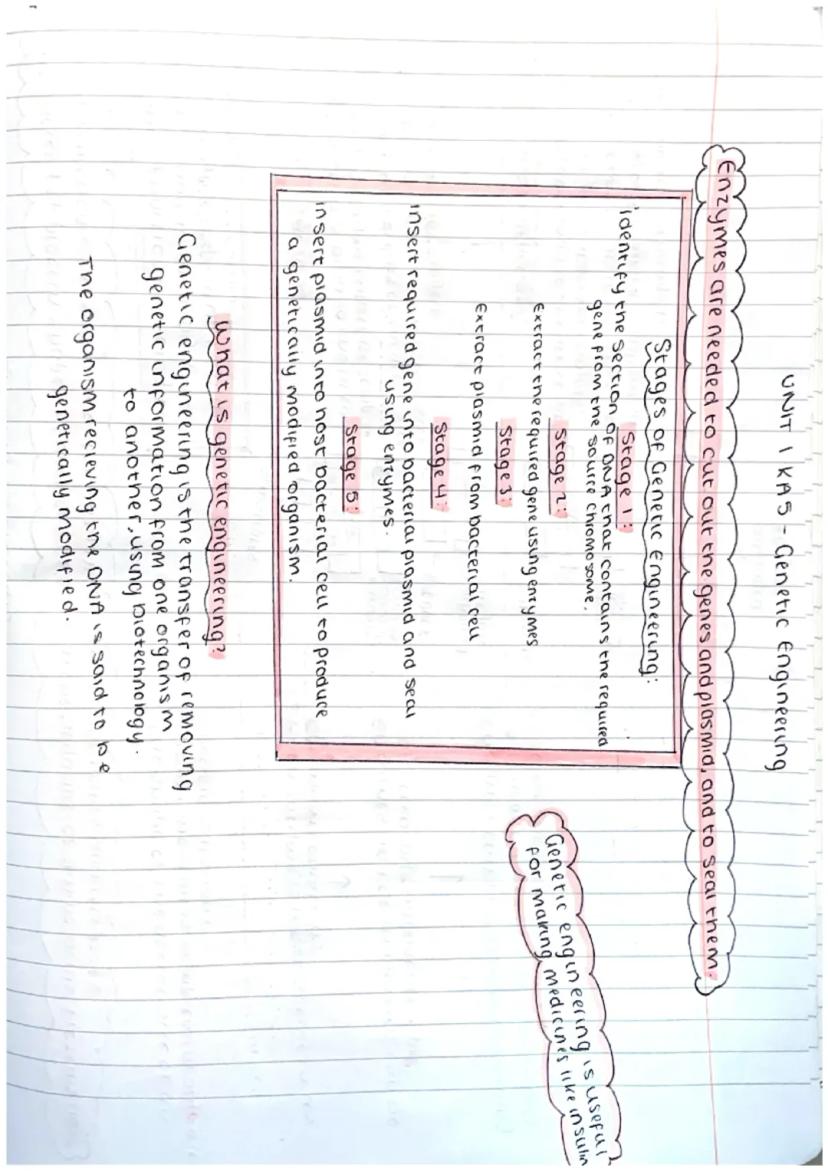 UNIT 1 KA5 - Genetic Engineering
Enzymes are needed to cut out the genes and plasmid, and to seal them.
Stages of Genetic Engineering:
Stage 1:
Identify the section of DNA that contains the required
gene from the source chromosome.
Stage 2:
Extract the required gene using enzymes
Stage 3:
Extract plasmid from bacterial cell
Stage 4:
Insert required gene into bacterial plasmid and seal
using enzymes.
Stage 5:
Insert plasmid into host bacterial cell to produce
a genetically modified organism.
Genetic engineering is useful
for making medicines like insulin
What is genetic engineering?
Genetic engineering is the transfer of removing
genetic information from one organism
to another, using biotechnology.
The organism recieving the DNA is said to be
genetically modified.